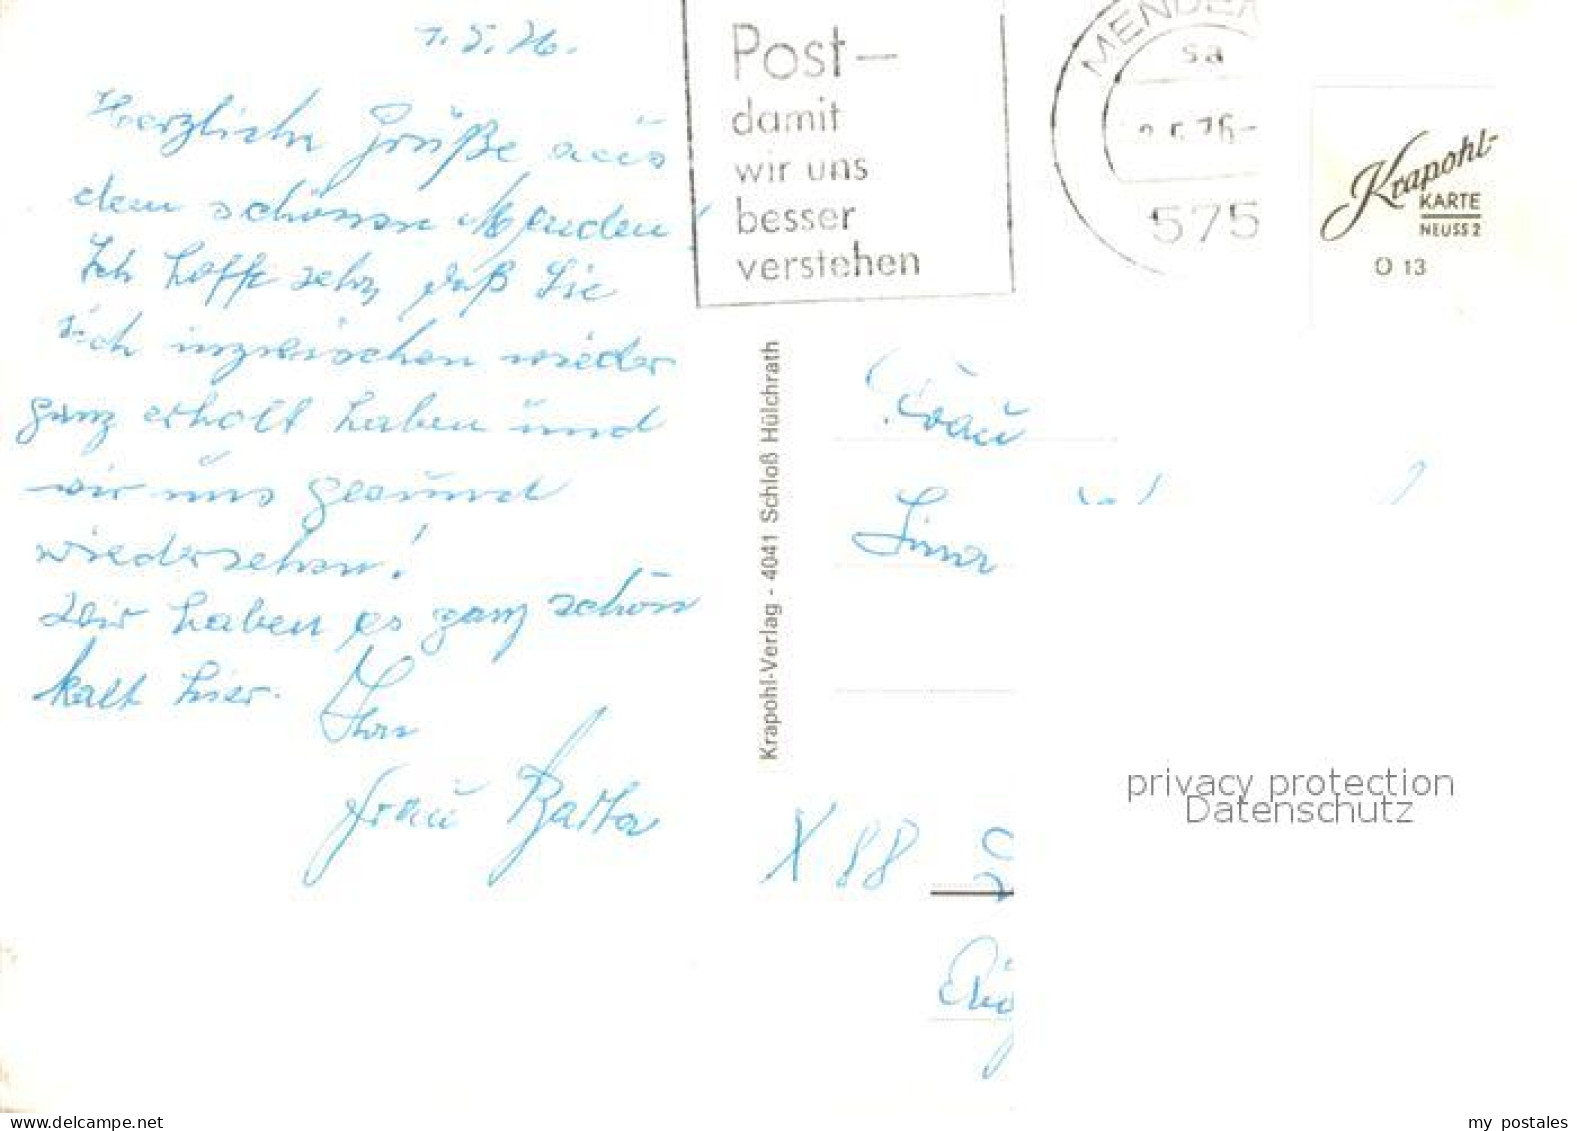 1.5.76.
Herzliche Grüße aus
dem schönen Menden!
Ich hoffe sehr, daß Sie
sich inzwischen wieder
ganz erholt haben und
wir uns gesund
wiedersehen!
Wir haben es ganz schön
kalt hier. Ihre
Frau
Post—
damit
wir uns
besser
verstehen
MENDEN
sa
76-
575
Krapohl-
KARTE
NEUSS 2
O 13
Krapohl-Verlag - 4041 Schloß Hülchrath
Frau
X 88
privacy protection
Datenschutz
my postales